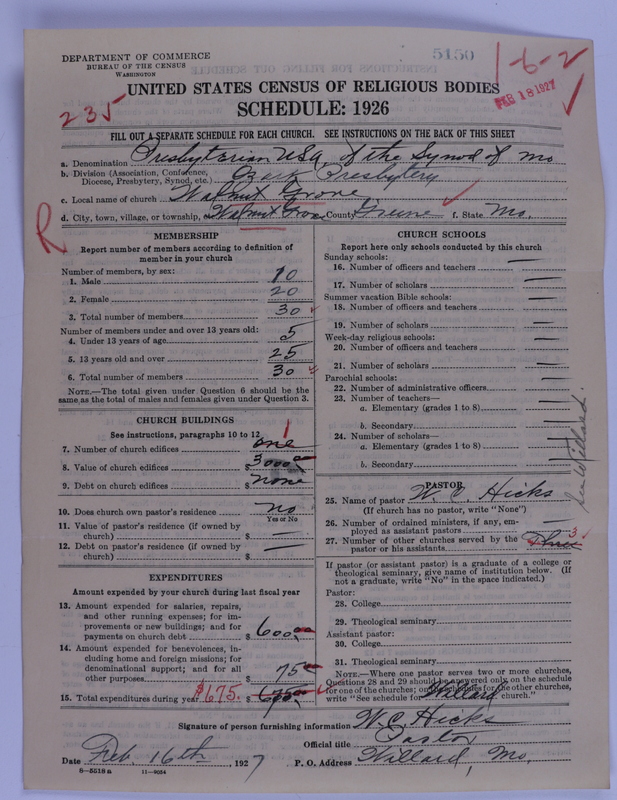 DEPARTMENT OF COMMERCE
BUREAU OF THE CENSUS
WASHINGTON
5150
1-6-2
FEB 18 1927
235
UNITED STATES CENSUS OF RELIGIOUS BODIES
SCHEDULE: 1926
FILL OUT A SEPARATE SCHEDULE FOR EACH CHURCH. SEE INSTRUCTIONS ON THE BACK OF THIS SHEET
a. Denomination Presbyterian USA, of the Synod of Mo
b. Division (Association, Conference, Diocese, Presbytery, Synod, etc.) Ozark Presbytery
c. Local name of church Walnut Grove
d. City, town, village, or township, Walnut Grove County Greene f. State Mo.
R
MEMBERSHIP
Report number of members according to definition of
member in your church
Number of members, by sex:
1. Male 10
2. Female 20
3. Total number of members 30
Number of members under and over 13 years old:
4. Under 13 years of age 5
5. 13 years old and over 25
6. Total number of members 30
NOTE.—The total given under Question 6 should be the
same as the total of males and females given under Question 3.
CHURCH BUILDINGS
See instructions, paragraphs 10 to 12
7. Number of church edifices one 1
8. Value of church edifices $ 3000 00
9. Debt on church edifices $ none
10. Does church own pastor's residence no
Yes or No
11. Value of pastor's residence (if owned by
church) $ —
12. Debt on pastor's residence (if owned by
church) $ —
EXPENDITURES
Amount expended by your church during last fiscal year
13. Amount expended for salaries, repairs,
and other running expenses; for im-
provements or new buildings; and for
payments on church debt $ 600.00
14. Amount expended for benevolences, in-
cluding home and foreign missions; for
denominational support; and for all
other purposes $ 75 00
15. Total expenditures during year $675. $ 675 00
CHURCH SCHOOLS
Report here only schools conducted by this church
Sunday schools:
16. Number of officers and teachers —
17. Number of scholars —
Summer vacation Bible schools:
18. Number of officers and teachers —
19. Number of scholars —
Week-day religious schools:
20. Number of officers and teachers —
21. Number of scholars —
Parochial schools:
22. Number of administrative officers —
23. Number of teachers—
a. Elementary (grades 1 to 8) —
b. Secondary —
24. Number of scholars—
a. Elementary (grades 1 to 8) —
b. Secondary —
See Willard.
PASTOR
25. Name of pastor W. C. Hicks
(If church has no pastor, write "None")
26. Number of ordained ministers, if any, em-
ployed as assistant pastors
27. Number of other churches served by the
pastor or his assistants Three 3
If pastor (or assistant pastor) is a graduate of a college or
theological seminary, give name of institution below. (If
not a graduate, write "No" in the space indicated.)
Pastor:
28. College
29. Theological seminary
Assistant pastor:
30. College
31. Theological seminary
NOTE.—Where one pastor serves two or more churches,
Questions 28 and 29 should be answered only on the schedule
for one of the churches; on the schedules for the other churches,
write "See schedule for Willard church."
Signature of person furnishing information W. C. Hicks
Official title Pastor
Date Feb. 16th, 1927 P. O. Address Willard, Mo.
8—5518a 11—9034